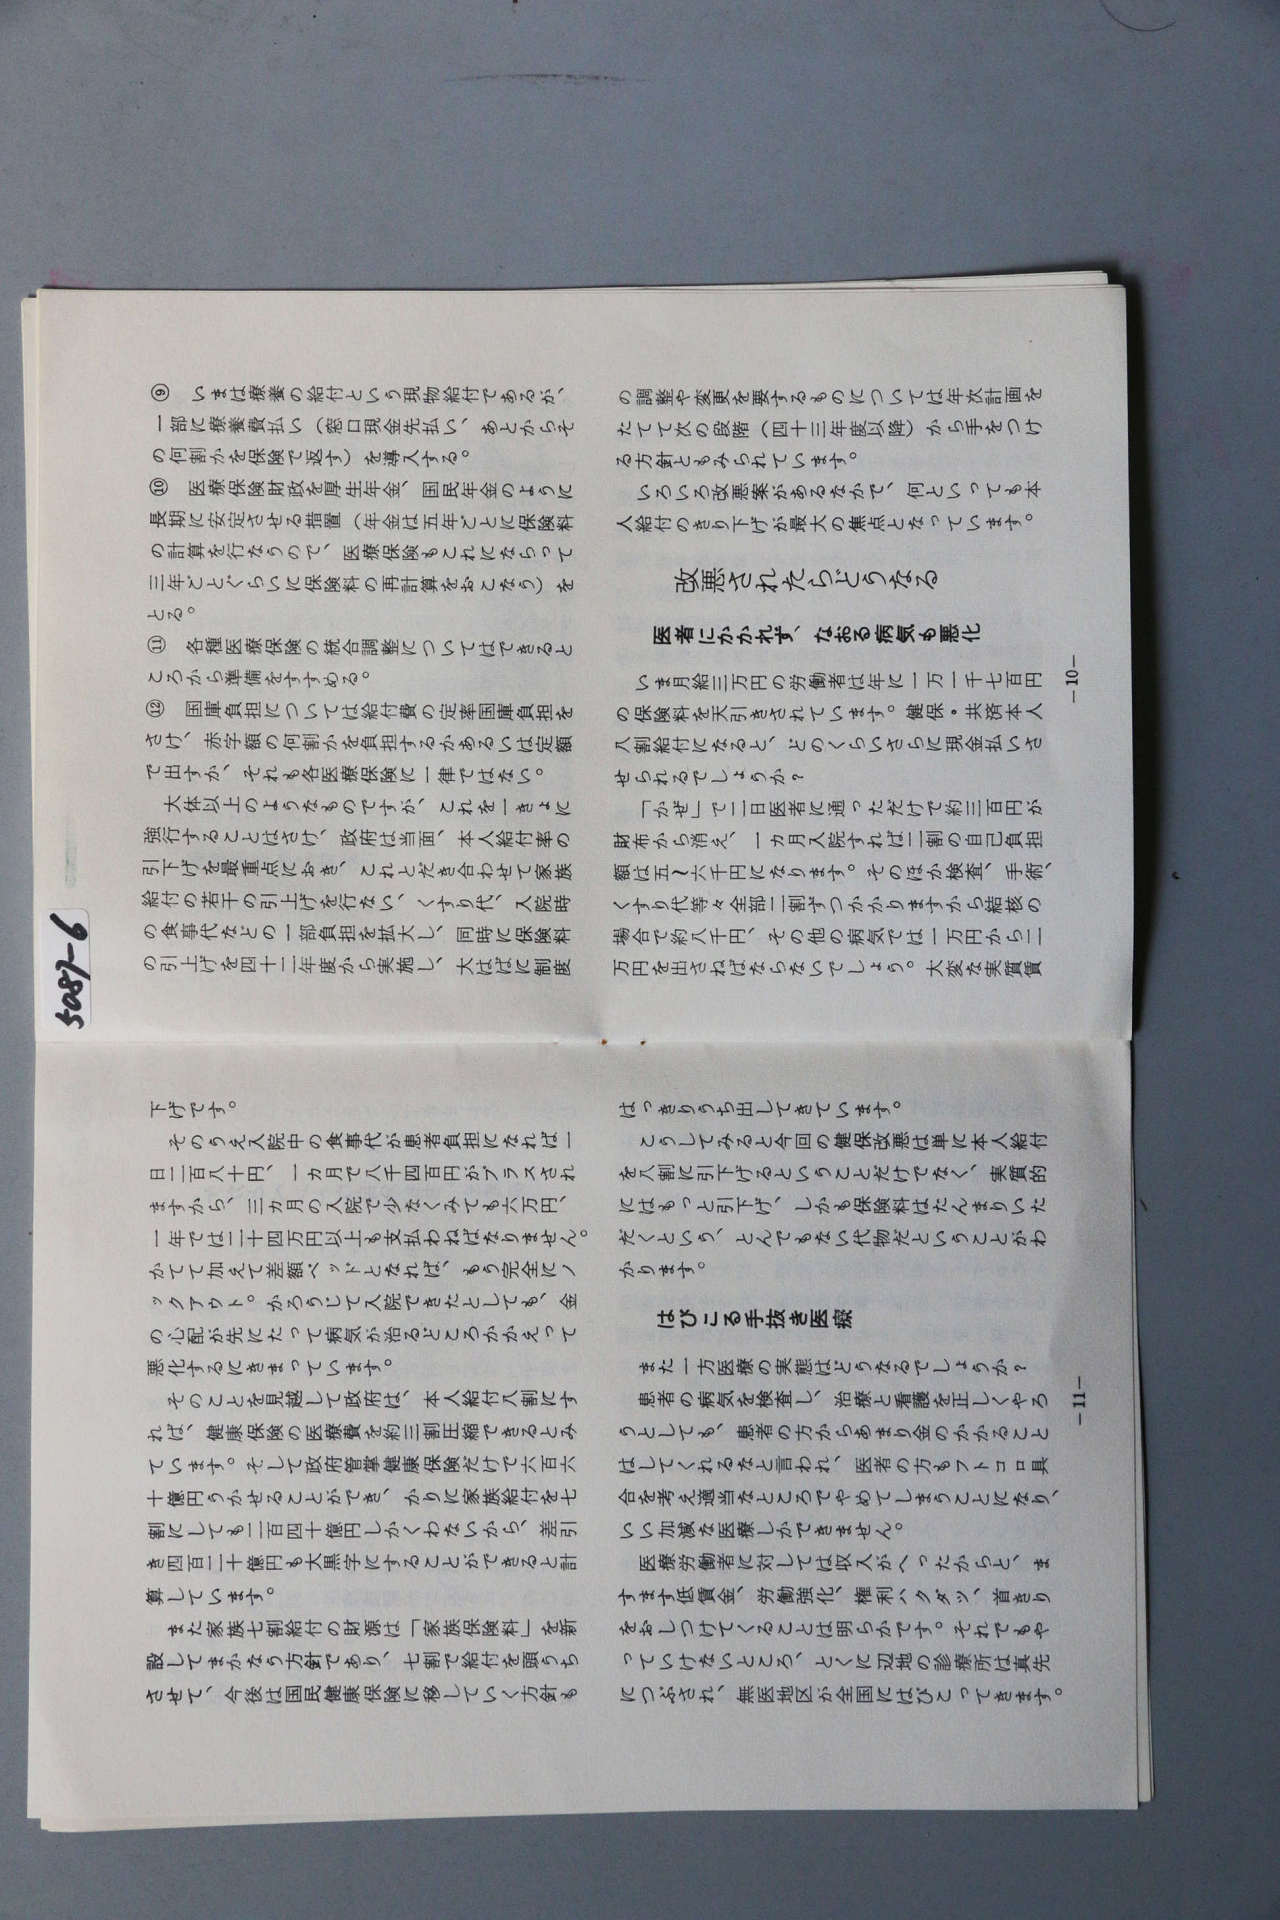 5087-6
⑨　いまは療養の給付という現物給付であるが、
一部に療養費払い（窓口現金先払い、あとからそ
の何割かを保険で返す）を導入する。
⑩　医療保険財政を厚生年金、国民年金のように
長期に安定させる措置（年金は五年ごとに保険料
の計算を行なうので、医療保険もこれにならって
三年ごとくらいに保険料の再計算をおこなう）を
とる。
⑪　各種医療保険の統合調整についてはできると
ころから準備をすすめる。
⑫　国庫負担については給付費の定率国庫負担を
さけ、赤字額の何割かを負担するかあるいは定額
で出すか、それも各医療保険に一律ではない。
大体以上のようなものですが、これを一きょに
強行することはさけ、政府は当面、本人給付率の
引下げを最重点におき、これとだき合わせて家族
給付の若干の引上げを行ない、くすり代、入院時
の食事代などの一部負担を拡大し、同時に保険料
の引上げを四十二年度から実施し、大はばに制度
の調整や変更を要するものについては年次計画を
たてて次の段階（四十三年度以降）から手をつけ
る方針ともみられています。
いろいろ改悪案があるなかで、何といっても本
人給付のきり下げが最大の焦点となっています。
改悪されたらどうなる
医者にかかれず、なおる病気も悪化
いま月給三万円の労働者は年に一万一千七百円
の保険料を天引きされています。健保・共済本人
八割給付になると、どのくらいさらに現金払いさ
せられるでしょうか？
「かぜ」で二日医者に通っただけで約三百円が
財布から消え、一カ月入院すれば二割の自己負担
額は五〜六千円になります。そのほか検査、手術、
くすり代等々全部二割ずつかかりますから結核の
場合で約八千円、その他の病気では一万円から二
万円を出さねばならないでしょう。大変な実質賃
—10—
下げです。
そのうえ入院中の食事代が患者負担になれば一
日二百八十円、一カ月で八千四百円がプラスされ
ますから、三カ月の入院で少なくみても六万円、
一年では二十四万円以上も支払わねばなりません。
かてて加えて差額ベッドとなれば、もう完全にノ
ックアウト。かろうじて入院できたとしても、金
の心配が先にたって病気が治るどころかかえって
悪化するにきまっています。
そのことを見越して政府は、本人給付八割にす
れば、健康保険の医療費を約三割圧縮できるとみ
ています。そして政府管掌健康保険だけで六百六
十億円うかせることができ、かりに家族給付を七
割にしても二百四十億円しかくわないから、差引
き四百二十億円も大黒字にすることができると計
算しています。
また家族七割給付の財源は「家族保険料」を新
設してまかなう方針であり、七割で給付を頭うち
させて、今後は国民健康保険に移していく方針も
はっきりうち出してきています。
こうしてみると今回の健保改悪は単に本人給付
を八割に引下げるということだけでなく、実質的
にはもっと引下げ、しかも保険料はたんまりいた
だくという、とんでもない代物だということがわ
かります。
はびこる手抜き医療
また一方医療の実態はどうなるでしょうか？
患者の病気を検査し、治療と看護を正しくやろ
うとしても、患者の方からあまり金のかかること
はしてくれるなと言われ、医者の方もフトコロ具
合を考え適当なところでやめてしまうことになり、
いい加減な医療しかできません。
医療労働者に対しては収入がへったからと、ま
すます低賃金、労働強化、権利ハクダツ、首きり
をおしつけてくることは明らかです。それでもや
っていけないところ、とくに辺地の診療所は真先
につぶされ、無医地区が全国にはびこってきます。
—11—